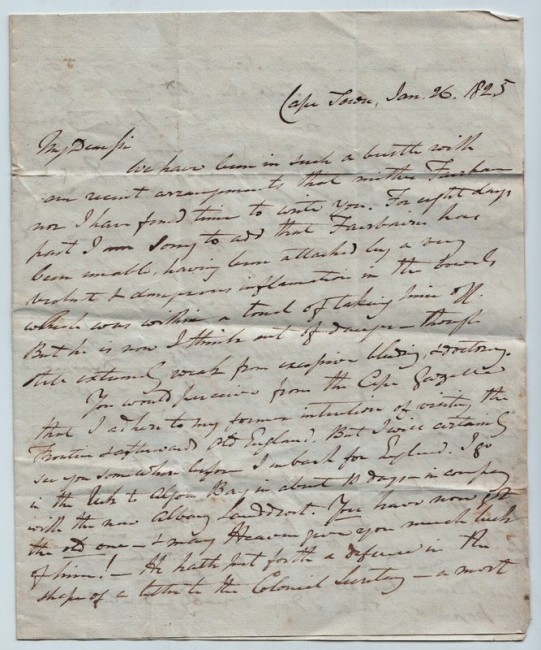 Cape Town, Jan. 26. 1825
My Dear Sir
We have been in such a bustle with
our recent arrangements that neither Fairbairn
nor I have found time to write you. For eight days
past I am sorry to add that Fairbairn has
been unwell, having been attacked by a very
violent & dangerous inflammation in the bowels
which was within a touch of taking him off.
But he is now I think out of danger – though
still extremely weak from excessive bleeding & doctoring.
You would perceive from the Cape Gazette
that I adhere to my former intention of visiting the
Frontier & afterwards old England. But I will certainly
see you somewhere before I embark for England. I go
in the to Algoa Bay in about 10 days – in company
with the new Albany Landdrost. You have now got
the old one – & may Heaven give you much luck
of him! – He hath put forth a defence in the
shape of a letter to the Colonial Secretary – a most